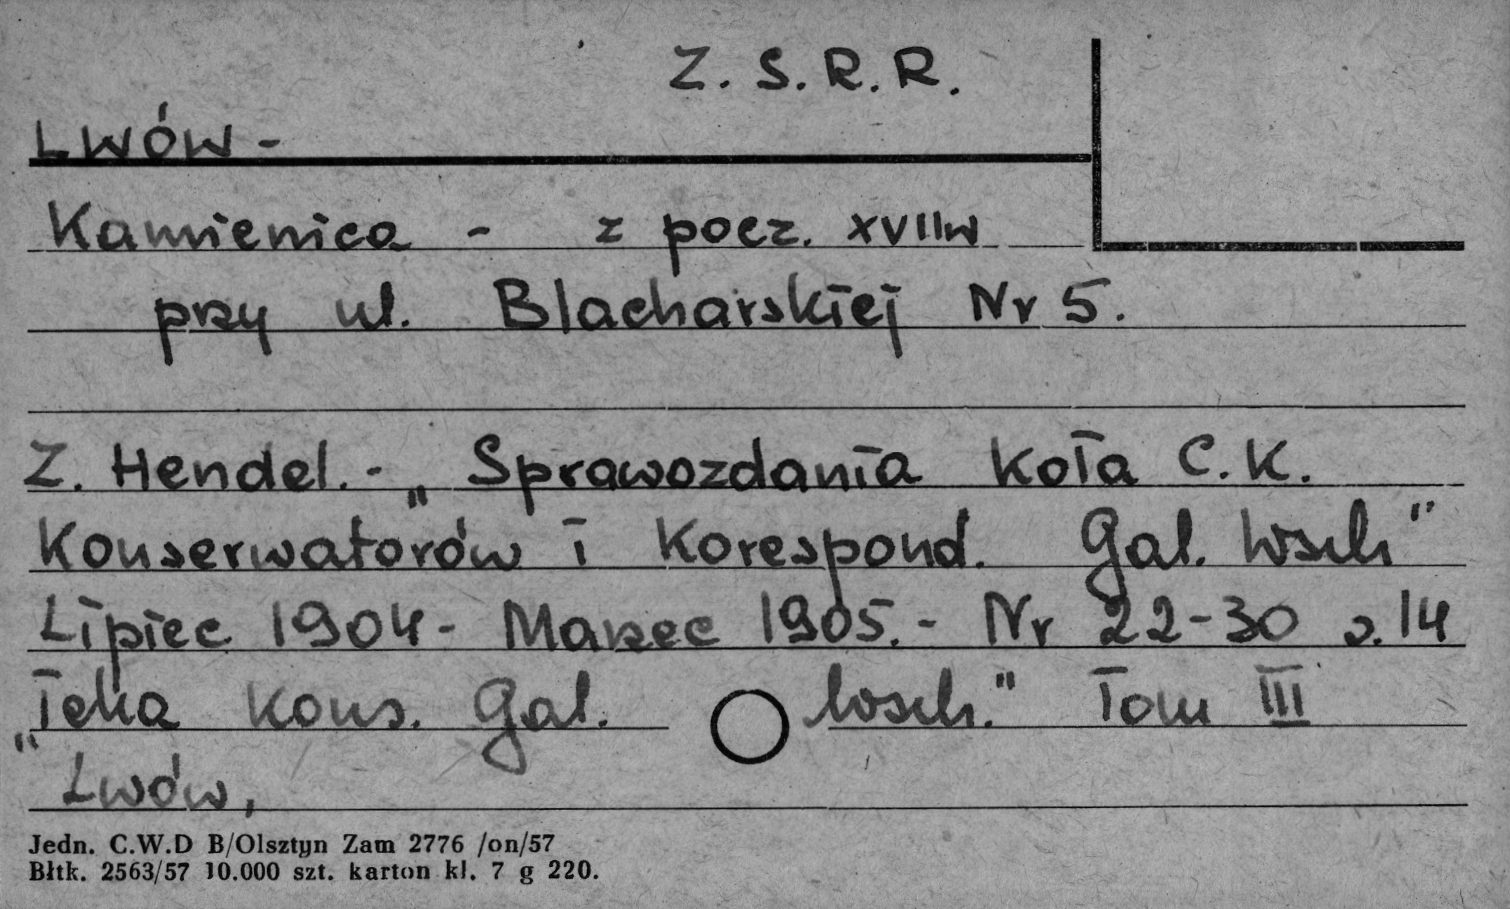 Z. S. R. R.
Lwów -
Kamienica - z pocz. XVII w
przy ul. Blacharskiej Nr 5.
Z. Hendel. - „Sprawozdania Koła C. K.
Konserwatorów i Korespond. Gal. Wsch"
Lipiec 1904 - Marzec 1905. - Nr 22-30 s. 14
„Teka Kons. Gal. Wsch." Tom III
Lwów,
Jedn. C.W.D B/Olsztyn Zam 2776 /on/57
Błtk. 2563/57 10.000 szt. karton kl. 7 g 220.